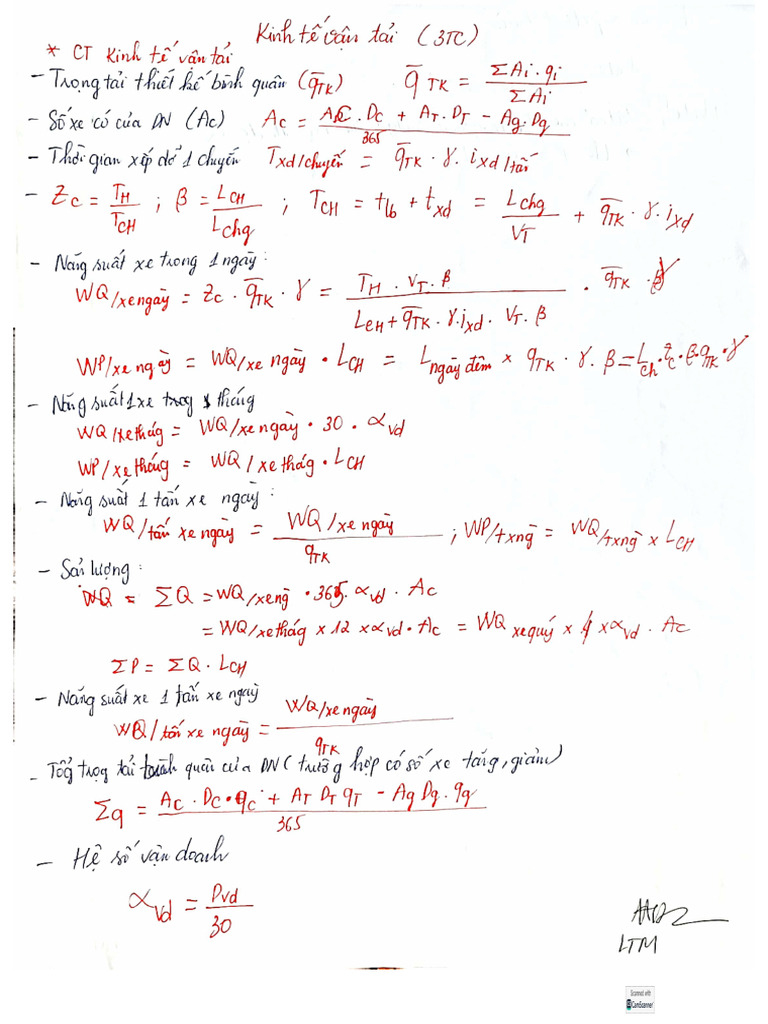 Kinh tế vận tải (3TC)
* CT Kinh tế vận tải
- Trọng tải thiết kế bình quân (q̅TK) q̅TK = ΣAi.qi / ΣAi
- Số xe có của DN (Ac) Ac = AC.Dc + AT.DT - Ag.Dg / 365
- Thời gian xếp dỡ 1 chuyến Txd/chuyến = q̅TK . γ. ixd/tấn
- Zc = TH / TCH ; β = LCH / Lchg ; TCH = tlb + txd = Lchg / VT + q̅TK . γ. ixd
- Năng suất xe trong 1 ngày:
WQ/xe ngày = Zc . q̅TK . γ = TH . VT. β / LCH + q̅TK . γ.ixd . VT. β . q̅TK . γ
WP/xe ngày = WQ/xe ngày . LCH = Lngày đêm × qTK . γ. β = Lch.Zc.β.qTK.γ
- Năng suất 1 xe trog tháng
WQ/xethág = WQ/xe ngày . 30 . αvd
WP/xe tháng = WQ/xe thág . LCH
- Năng suất 1 tấn xe ngày:
WQ/tấn xe ngày = WQ/xe ngày / qTK ; WP/txng = WQ/txng x LCH
- Sản lượng:
WQ = ΣQ = WQ/xeng . 365. αvd . Ac
= WQ/xe thág x 12 x αvd . Ac = WQ xe quý x 4 x αvd . Ac
ΣP = ΣQ . LCH
- Năng suất xe 1 tấn xe ngày
WQ/tấn xe ngày = WQ/xe ngày / qTK
- Tổg trọg tải bình quân của DN (trườg hợp có số xe tăng, giảm)
Σq = Ac. Dc.qc + AT DT qT - Ag Dg. qg / 365
- Hệ số vận doanh
αvd = Dvd / 30
LTM
Scanned with
CamScanner